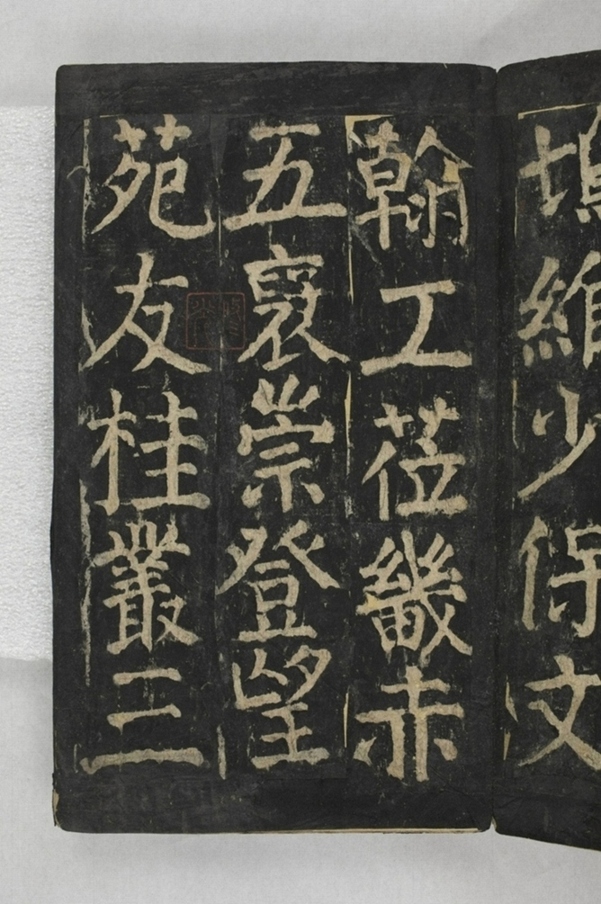 維少保文
翰工莅畿赤
五崇登望
苑友桂叢三